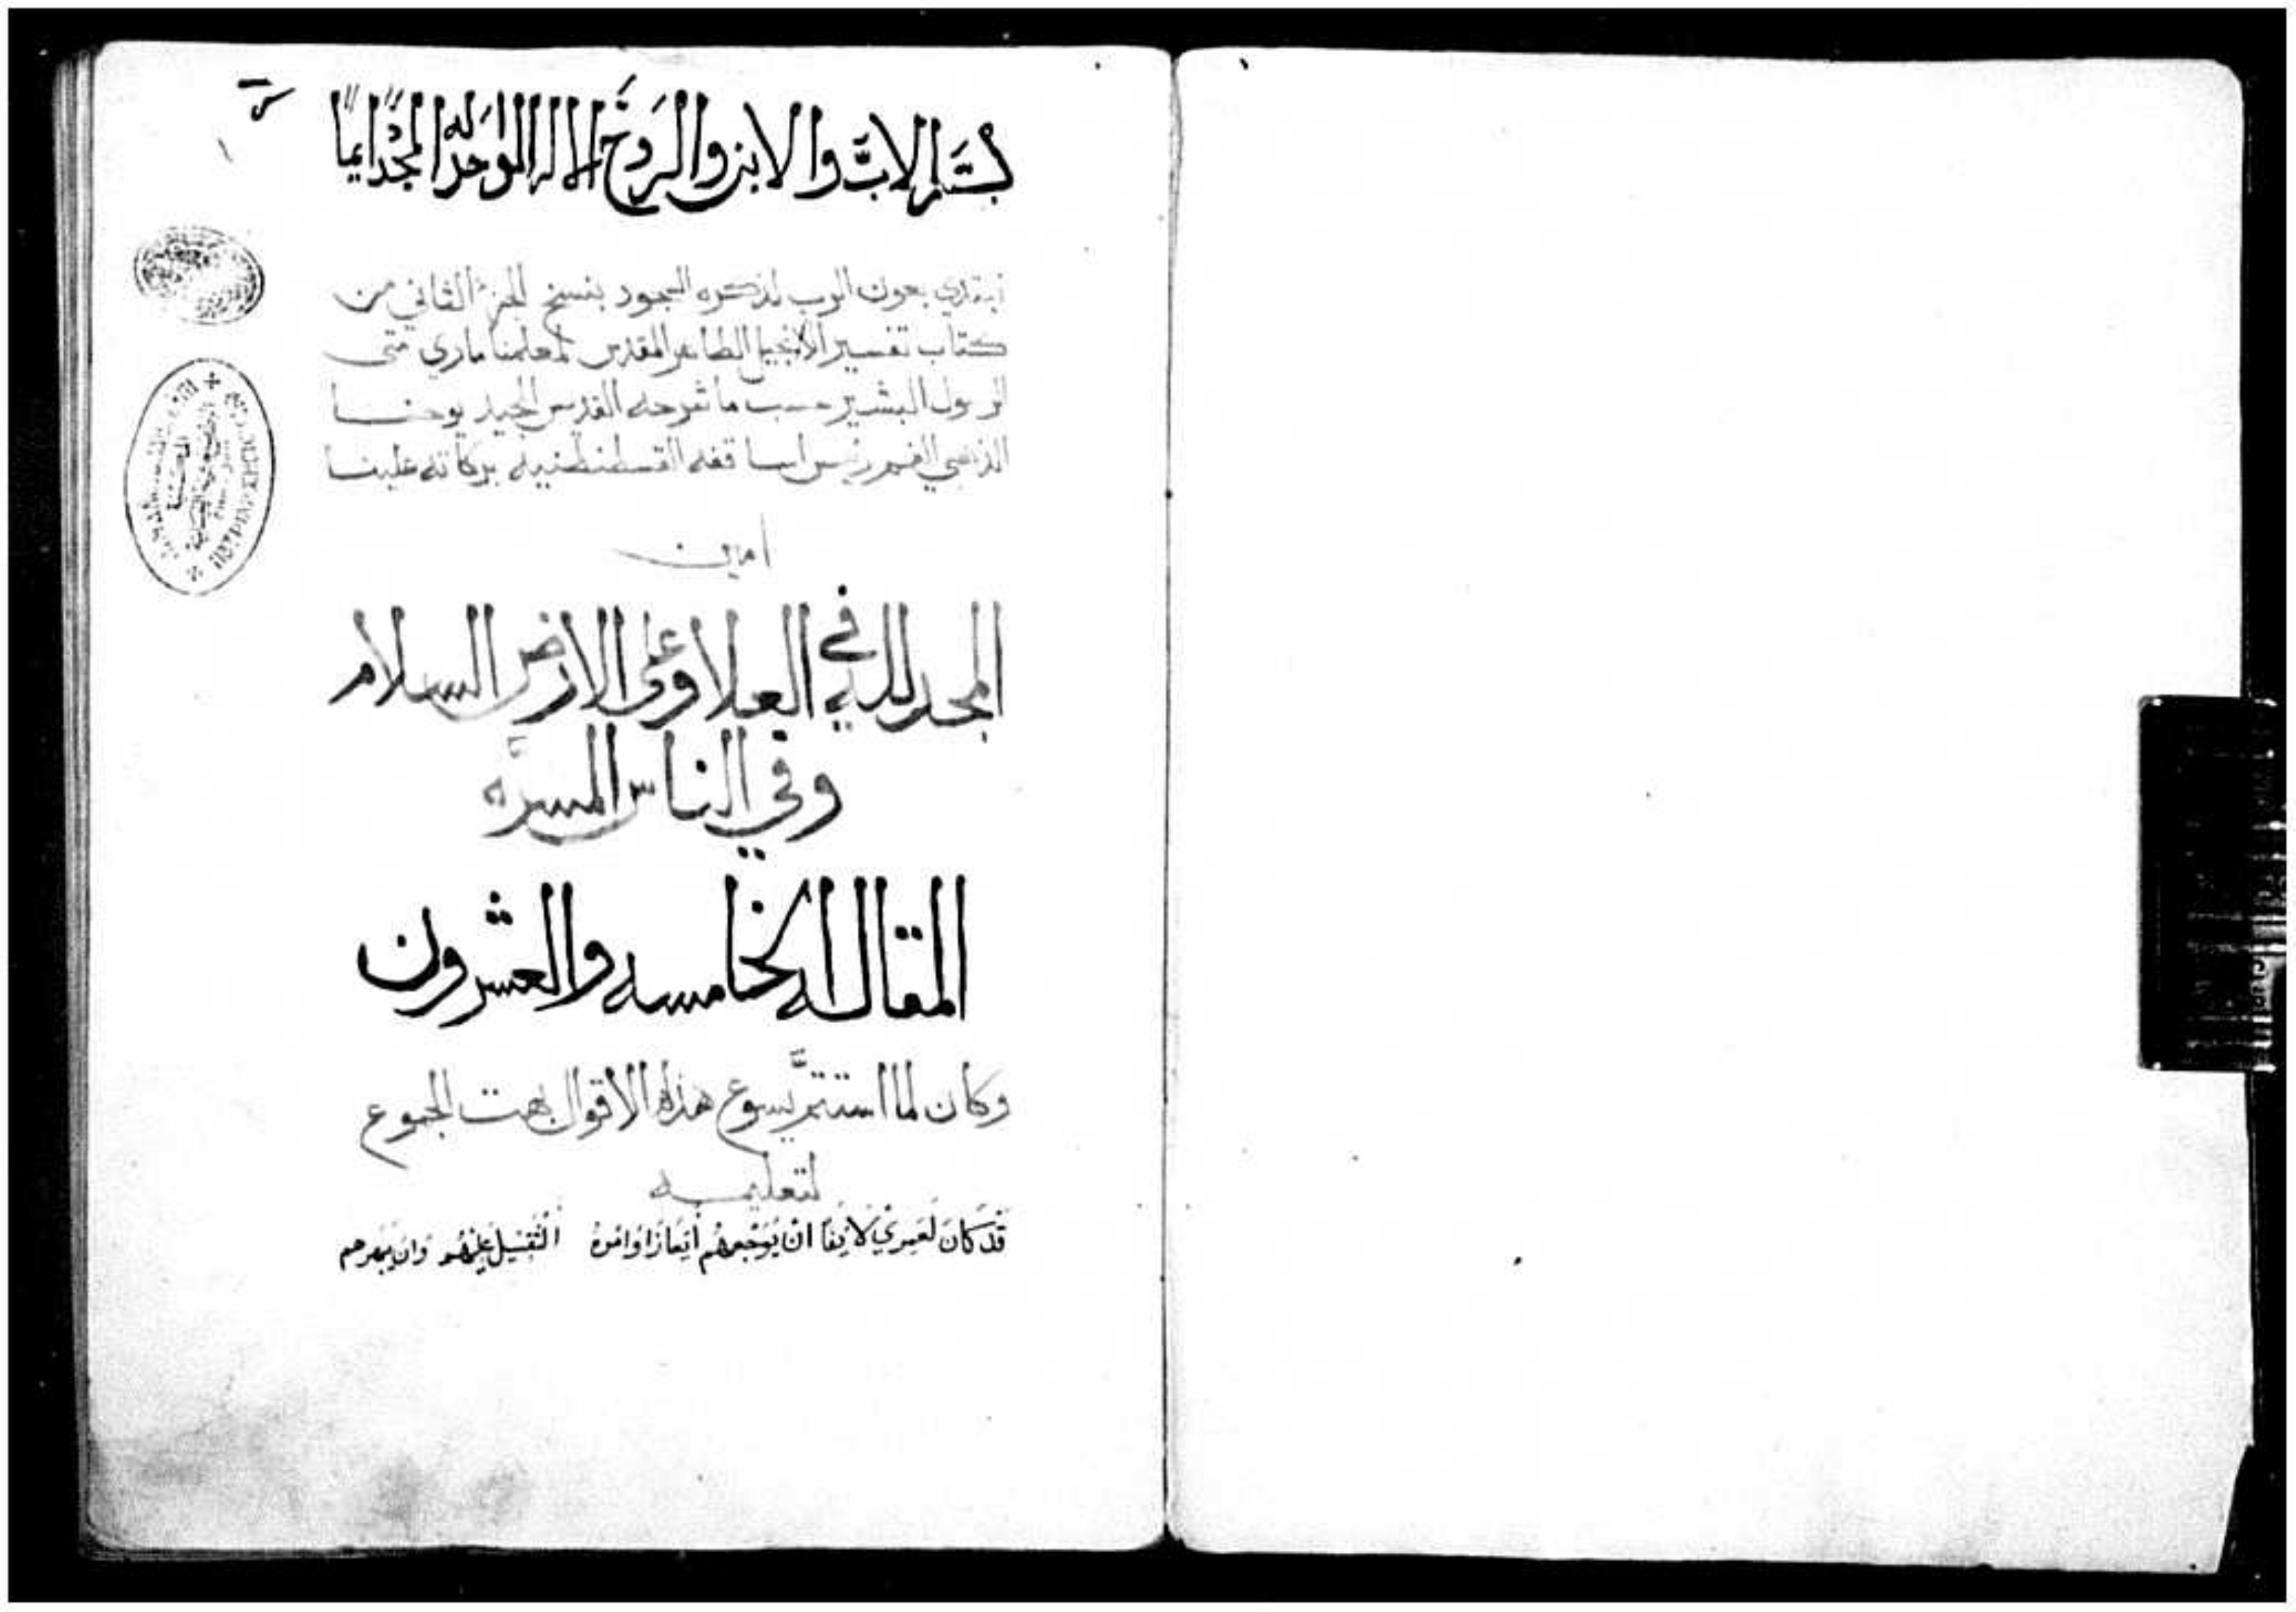 بسم الاب والابن والروح الاله الواحد له المجد دايماً
نبتدي بعون الرب لذكره السجود بنسخ الجزء الثاني من
كتاب تفسير الانجيل الطاهر المقدس لمعلمنا ماري متى
الرسول البشير حسب ما شرحه القديس الجيد يوحنا
الذهبي الفم رئيس اساقفه القسطنطنيه بركاته علينا
امين
المجد لله في العلا وعلى الارض السلام
وفي الناس المسرَّه
المقاله الخامسه والعشرون
وكان لما استتمَّ يسوع هذه الاقوال بهت الجموع
لتعليمه
قَد كانَ لَعَمري لايقاً ان يوجعهم ايعازا وامره الثقيل عليهم وان يبهرهم